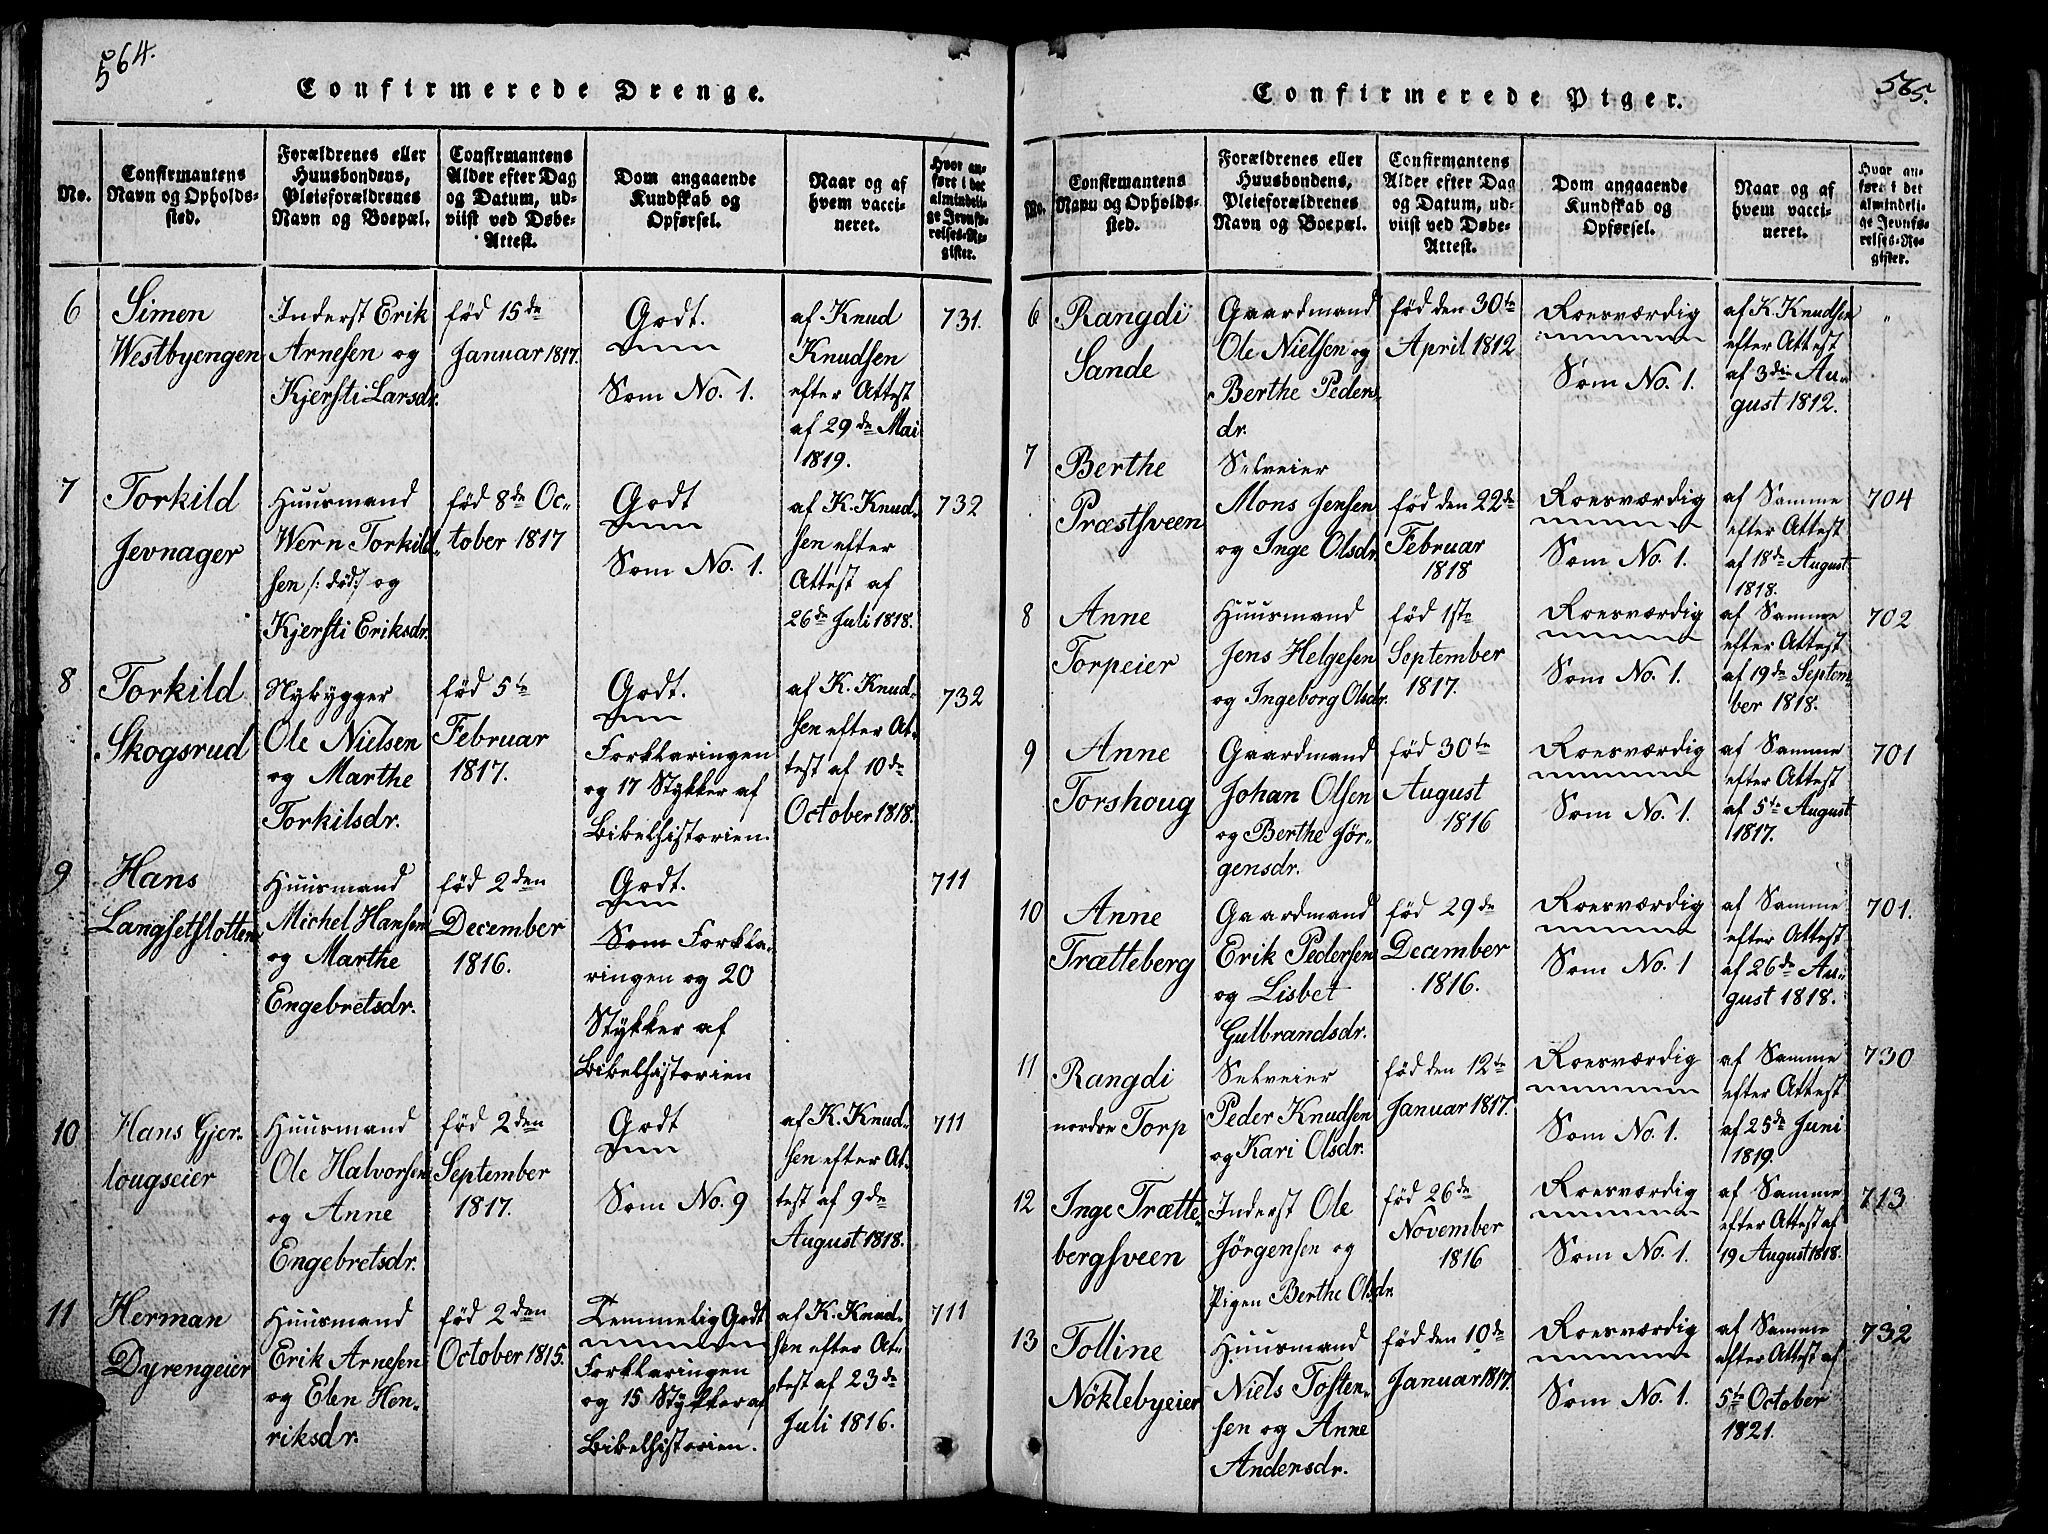 564.
Confirmerede Drenge.
No.
Confirmantens
Navn og Opholds-
sted.
Forældrenes eller
Huusbondens,
Pleieforældrenes
Navn og Boepæl.
Confirmantens
Alder efter Dag
og Datum, ud-
viist ved Døbe-
Attest.
Dom angaaende
Kundskab og
Opførsel.
Naar og af
hvem vacci-
neret.
Hvor an-
ført i det
almindeli-
ge Jevnfø-
relses-Re-
gister.
6
Simen
Westbyengen
Inderst Erik
Arnesen og
Kjersti Larsdr.
fød 15de
Januar 1817.
Godt.
Som No. 1.
af Knud
Knudsen
efter Attest
af 29de Mai
1819.
731.
7
Torkild
Jevnager
Huusmand
Wern Torkild-
sen /: død :/ og
Kjersti Eriksdr.
fød 8de Oc-
tober 1817
Godt
Som No. 1.
af K. Knud-
sen efter
Attest af
26de Juli 1818.
732
8
Torkild
Skogsrud
Nybygger
Ole Nielsen
og Marthe
Torkilsdr.
fød 5te
Februar
1817.
Godt.
Forklaringen
og 17 Stykker af
Bibelhistorien.
af K. Knud-
sen efter At-
test af 10de
October 1818.
732
9
Hans
Langsetslotten
Huusmand
Michel Hansen
og Marthe
Engebretsdr.
fød 2den
December
1816.
Godt.
Som Forkla-
ringen og 20
Stykker af
Bibelhistorien
711
10
Hans Gjer-
lougseier
Huusmand
Ole Halvorsen
og Anne
Engebretsdr.
fød 2den
September
1817.
Godt
Som No. 9
af K. Knud-
sen efter At-
test af 9de
August 1818.
711
11
Herman
Dyrengeier
Huusmand
Erik Arnesen
og Elen Hen-
riksdr.
fød 2den
October 1815.
Temmelig Godt
Forklaringen
og 15 Stykker af
Bibelhistorien.
af K. Knud-
sen efter At-
test af 23de
Juli 1816.
711
565.
Confirmerede Piger.
No.
Confirmantens
Navn og Opholds-
sted.
Forældrenes eller
Huusbondens,
Pleieforældrenes
Navn og Boepæl.
Confirmantens
Alder efter Dag
og Datum, ud-
viist ved Døbe-
Attest.
Dom angaaende
Kundskab og
Opførsel.
Naar og af
hvem vacci-
neret.
Hvor an-
ført i det
almindeli-
ge Jevnfø-
relses-Re-
gister.
6
Rangdi
Sande
Gaardmand
Ole Nielsen og
Berthe Peders
dr.
fød den 30te
April 1812
Roesværdig
Som No. 1.
af K. Knudsen
efter Attest
af 3die Au-
gust 1812.
"
7
Berthe
Præstsveen
Selveier
Mons Jensen
og Inge Olsdr.
fød den 22de
Februar
1818
Roesværdig
Som No. 1.
af Samme
efter Attest
af 18de August
1818.
704
8
Anne
Torpeier
Huusmand
Jens Helgesen
og Ingeborg Olsdr.
fød 1ste
September
1817.
Roesværdig
Som No. 1.
af Samme
efter Attest
af 19de Septem-
ber 1818.
702
9
Anne
Torshoug
Gaardmand
Johan Olsen
og Berthe Jør-
gensdr.
fød 30te
August
1816
Roesværdig
Som No. 1.
af Samme
efter Attest
af 5te August
1817.
701
10
Anne
Trætteberg
Gaardmand
Erik Pedersen
og Lisbet
Gulbrandsdr.
fød 29de
December
1816.
Roesværdig
Som No. 1
af Samme
efter Attest
af 26de Au-
gust 1818.
701.
11
Rangdi
nordre Torp
Selveier
Peder Knudsen
og Kari Olsdr.
fød den 12te
Januar 1817.
Roesværdig
Som No. 1.
af Samme
efter Attest
af 25de Juni
1819.
730
12
Inge Trætte-
bergsveen
Inderst Ole
Jørgensen og
Pigen Berthe Olsdr
fød 26de
November
1816
Roesværdig
Som No. 1.
af Samme
efter Attest af
19 August 1818.
713
13
Tolline
Nöklebyeier
Huusmand
Niels Tosten-
sen og Anne
Andersdr.
fød den 10de
Januar 1817.
Roesværdig
Som No. 1.
af Samme
efter Attest af
5te October
1821.
732